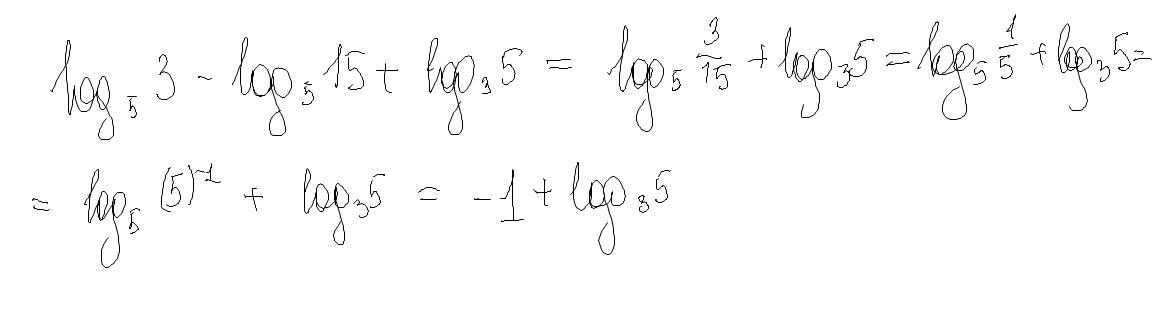 log₅ 3 - log₅ 15 + log₃ 5 = log₅ 3/15 + log₃ 5 = log₅ 1/5 + log₃ 5 =
= log₅ (5)⁻¹ + log₃ 5 = -1 + log₃ 5